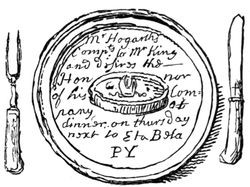 Mr Hogarth's
Compts to Mr King
and desires the
Honnor
of his Company
at
dinner on thursday
next to Eta Beta
PY